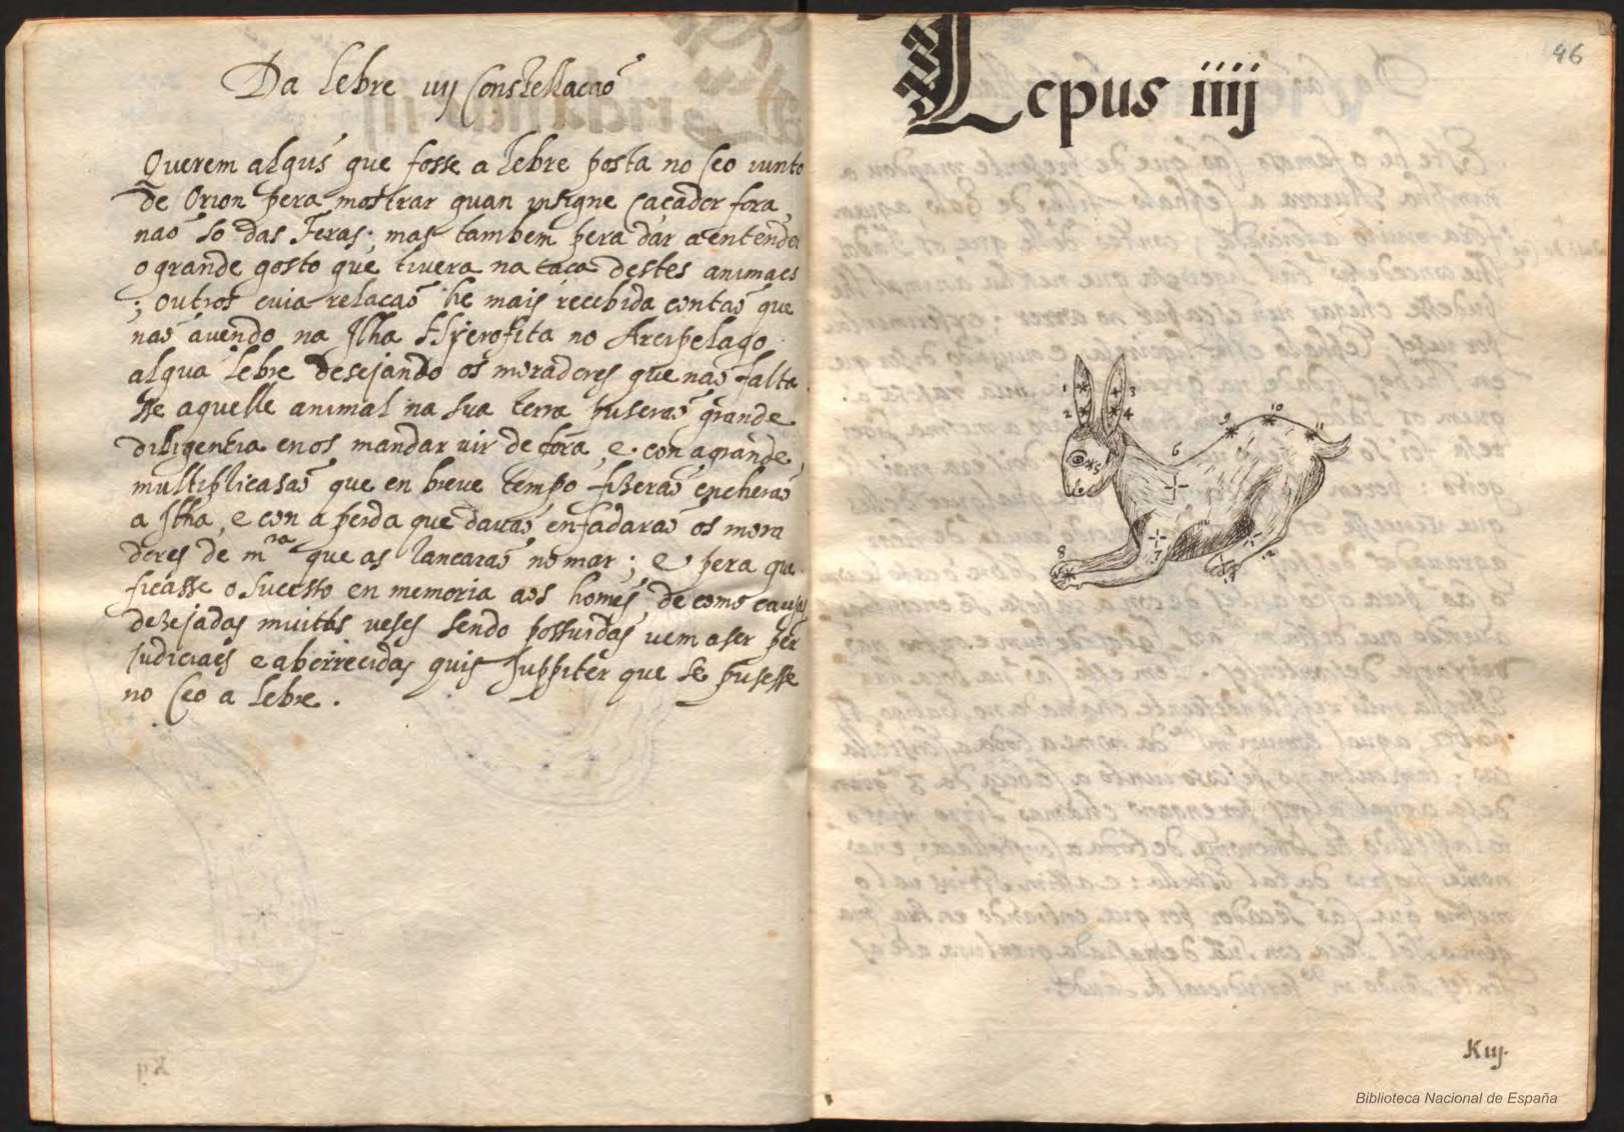 Da lebre iiij Constellacaõ
Querem algũs que fosse a lebre posta no Ceo iunto
de Orion pera mostrar quan insigne cacador fora,
naõ só das Feras; mas tambem pera dár a entender
o grande gosto que tivera na caca destes animaes
; outros cuia relacaõ he mais recebida contaõ que
naõ avendo na Ilha Hyerofita no Arcipelago
algua lebre desejando os moradores que naõ falta
sse aquelle animal na sua terra puseraõ grande
diligentia en os mandar vir de fóra, e con a grande
multiplicasaõ que en breve tempo fizeraõ encheraõ
a Ilha, e con a perda que davaõ enfadaraõ os mora
dores de mnra que as lancaraõ no mar; e pera que
ficasse o sucesso en memoria aos homẽs, de como causas
desejadas muitas veses sendo possuidas vem a ser per
judiciaes e aborrecidas quis Juppiter que se pusesse
no Ceo a lebre.
46
Lepus iiij
1
2
3
4
5
6
7
8
9
10
11
12
Kiij.
Biblioteca Nacional de España